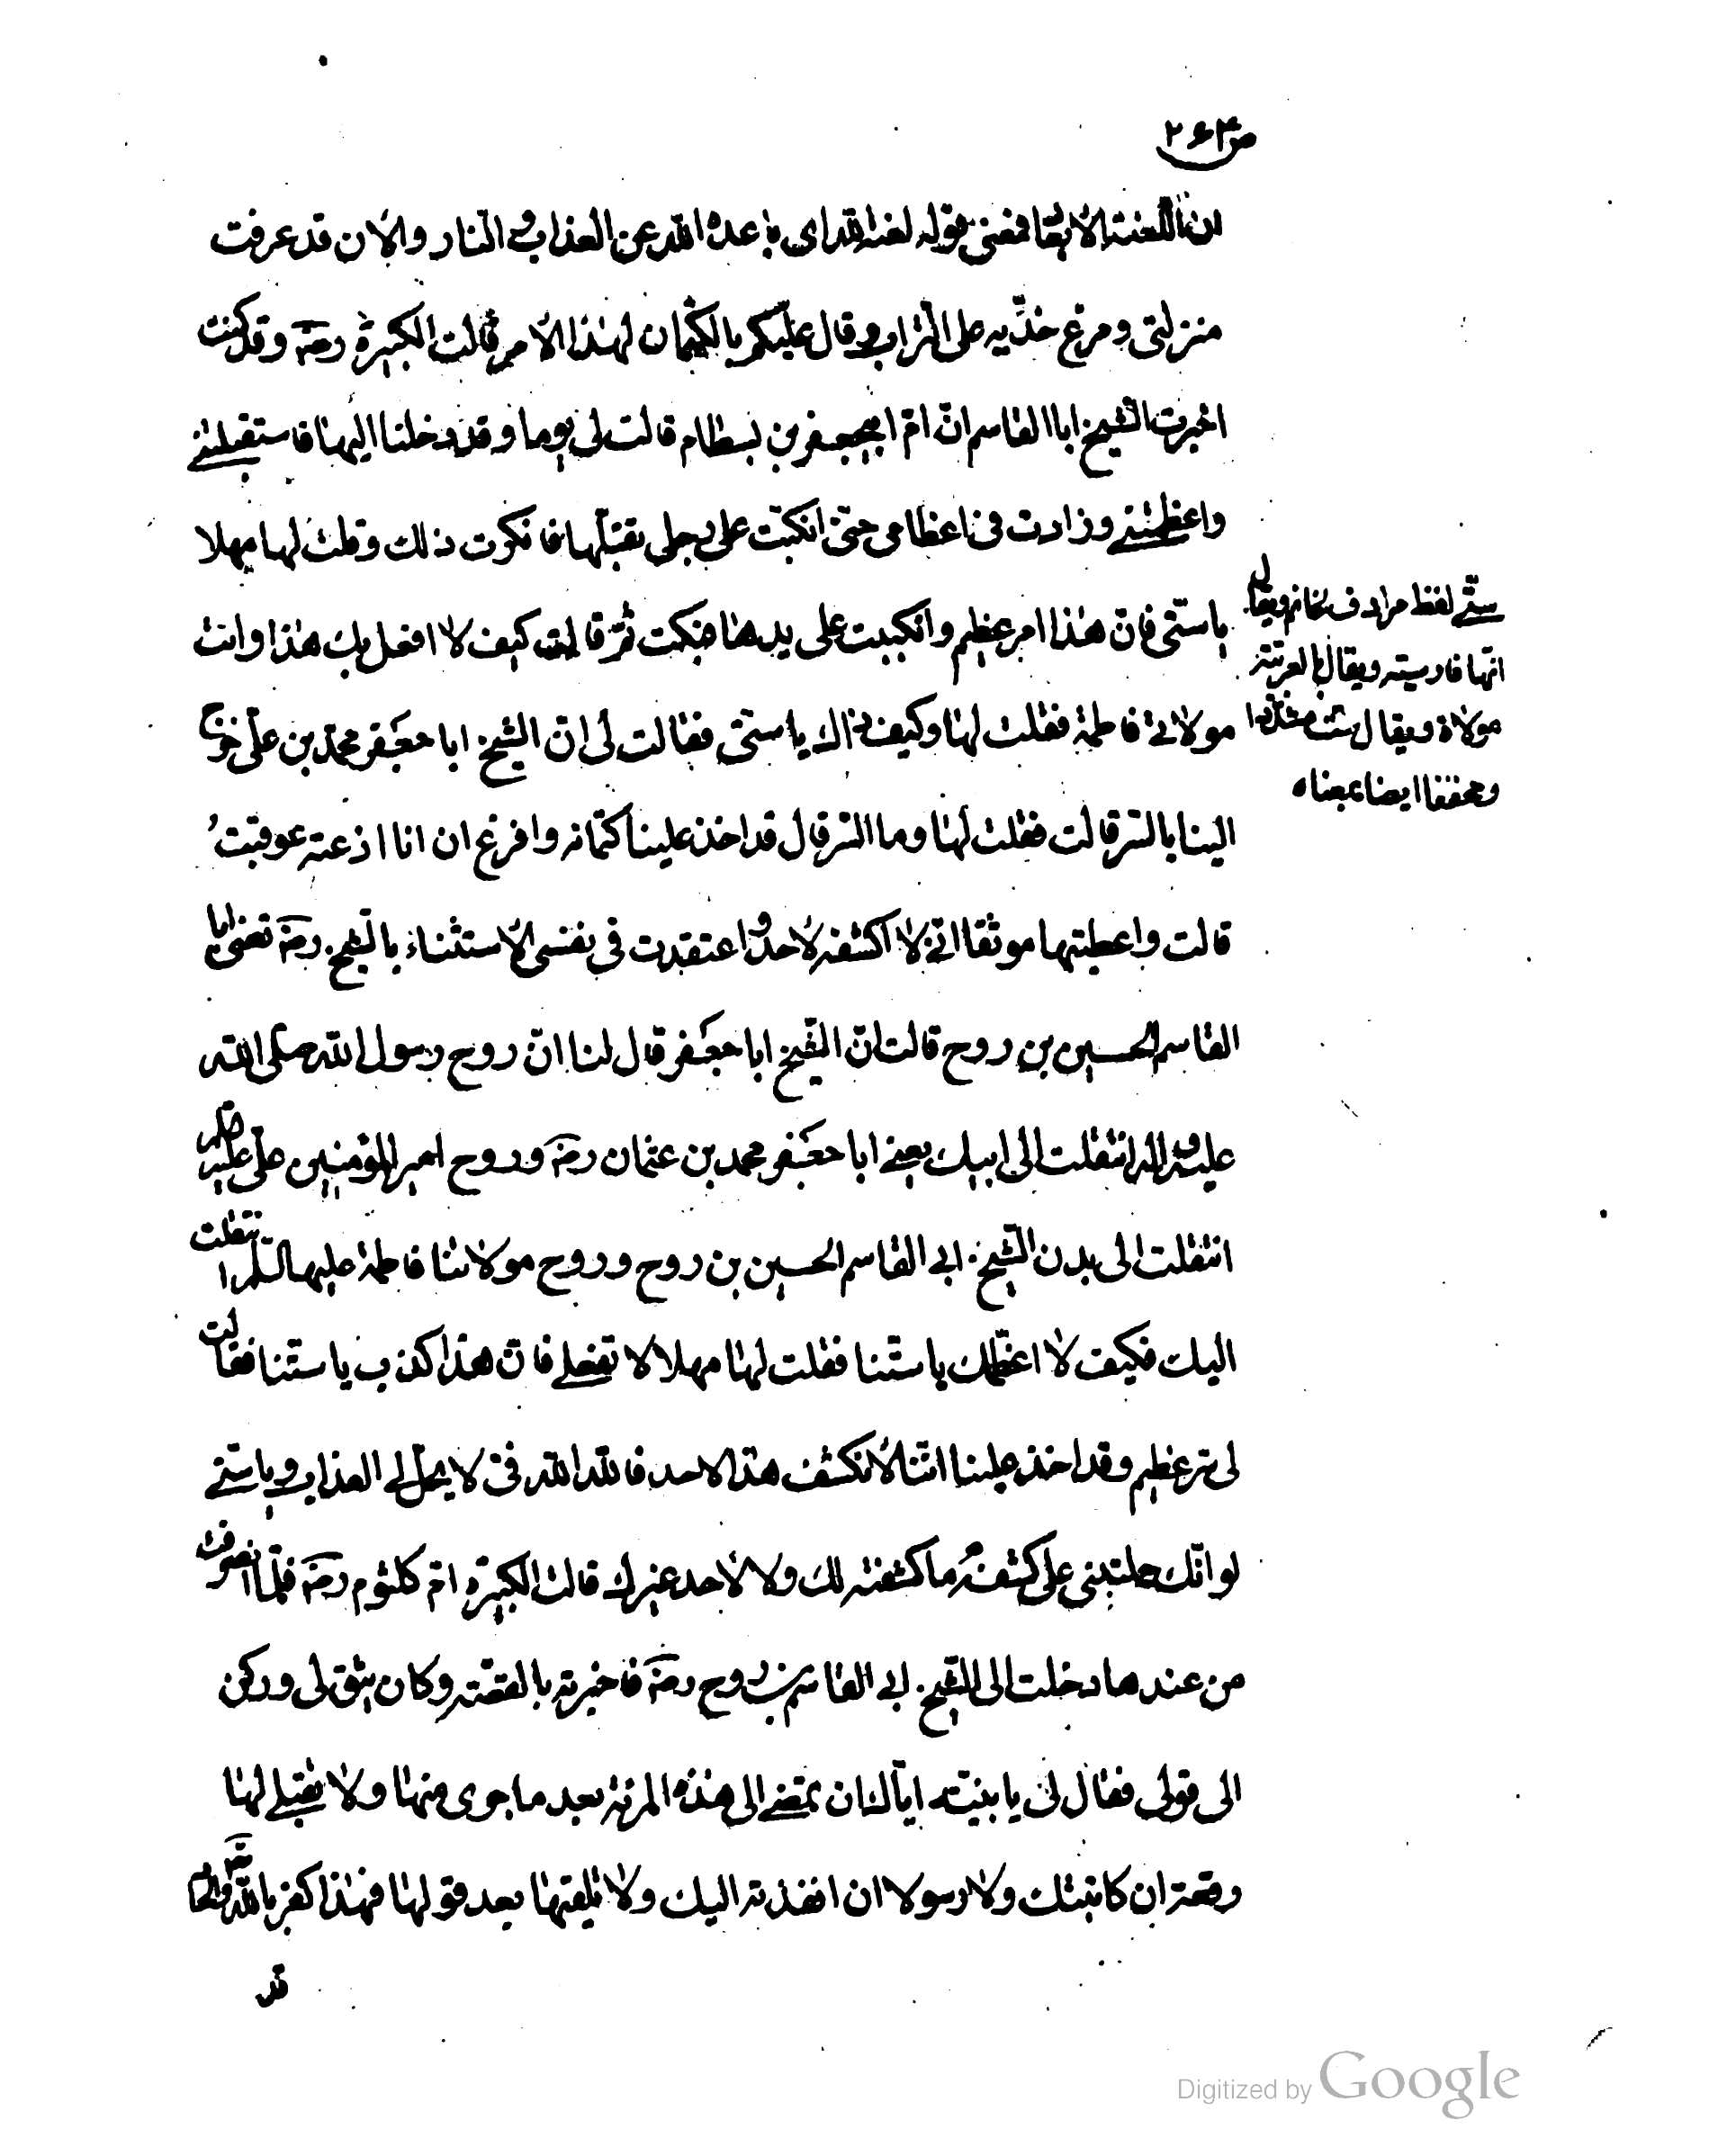 ص۲۶۳
ان اللعنة الابعاد فمعنى قوله لعنه الله اى باعده الله عن العذاب و النار و الان قد عرفت
منزلتى و مرغ خدّيه على التراب و قال عليكم بالكتمان لهذا الامر قالت الكبيرة رضه و قد كنت
اخبرت الشيخ ابا القاسم انّ امّ ابيجعفر بن بسطام قالت لى يوما و قد دخلنا اليها فاستقبلتنى
واعظمتنى و زادت فى اعظامى حتى انكبّت على رجلى تقبّلها فانكرت ذلك و قلت لها مهلا
ياستّى فان هذا امر عظيم و انكببت على يدها فبكت ثمّ قالت كيف لا افعل بك هذا و انت
مولاتى فاطمة فقلت لها و كيف ذاك ياستى فقالت لى ان الشيخ ابا جعفر محمد بن على خرج
الينا بالستر قالت فقلت لها و ما الستر قال قد اخذ علينا كتمانه و افزع ان انا اذعته عوقبتُ
قالت و اعطيتها موثقا انى لا اكشفه لاحد و اعتقدت فى نفسى الاستثناء بالشيخ رضه تعنى ابا
القاسم الحسين بن روح قالت انّ الشيخ ابا جعفر قال لنا انّ روح رسول الله صلى الله
عليه و اله انتقلت الى ابيك يعنى ابا جعفر محمد بن عثمان رضه و روح امير المؤمنين على عليه
انتقلت الى بدن الشيخ ابى القاسم الحسين بن روح و روح مولاتنا فاطمة عليها السلم انتقلت
اليك فكيف لا اعظّمك ياستّنا فقلت لها مهلا لا تفعلى فانّ هذا كذب ياستّنا فقالت
لى سر عظيم و قد اخذ علينا اننا لا نكشف هذا لاحد فالله الله فىّ لا يحل لى العذاب و ياستى
لو انّك حملتنى على كشفه ما كشفته لك و لا لاحد غيرك قالت الكبيرة امّ كلثوم رضه فلمّا انصرفت
من عندها دخلت الى الشيخ ابى القاسم بن روح رضه فاخبرته بالقصّة و كان يثق لى و ركن
الى قولى فقال لى يا بنيّة ايّاك ان تمضى الى هذه المرئة بعد ما جرى منها و لا تقبلى لها
رقعة ان كاتبتك و لا رسولا ان انفذته اليك و لا تلقيها بعد قولها فهذا كفر بالله
قد
ستّى لفظ مرادف خانم و يقال
انّها فارسيته و يقال بالعربيّة
مولاة و يقال ست مشدّدا
و مخففا ايضا بمعناه
Digitized by Google